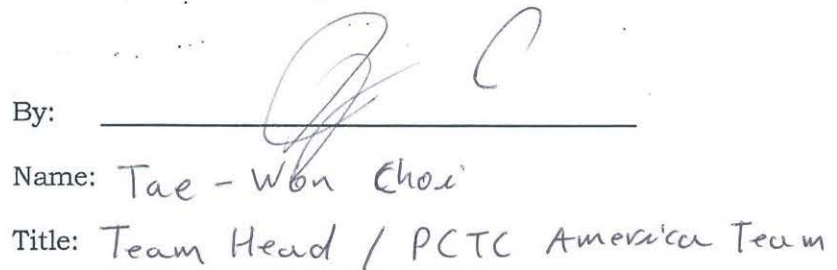 By:
Name: Tae-Won Choi
Title: Team Head / PCTC America Team